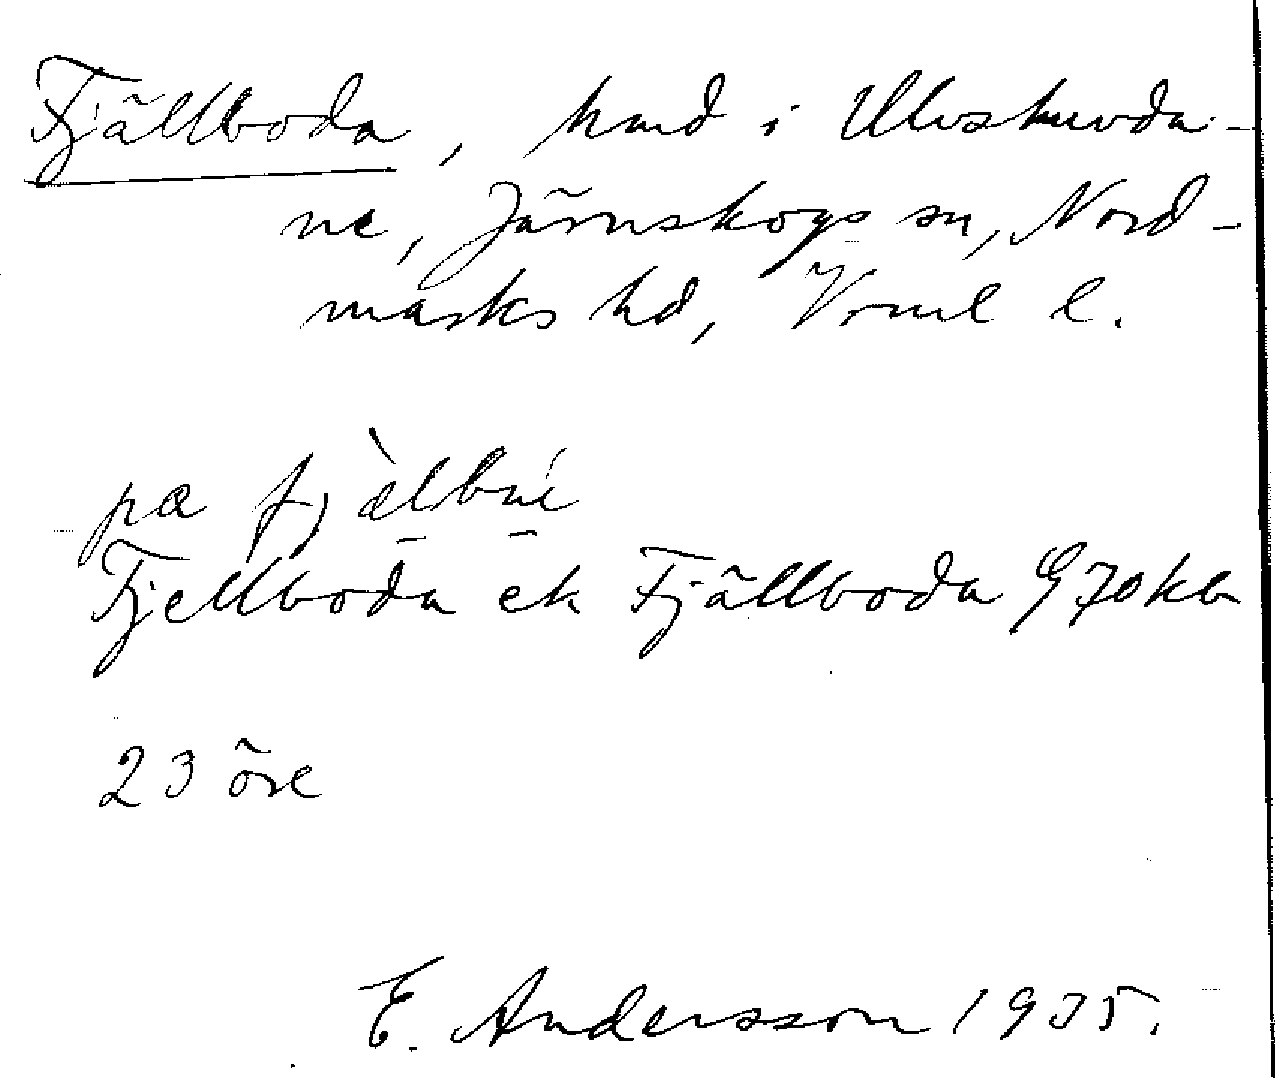 Fjällboda, hmd i Ulvskuvda-
ne, Järnskogs sn, Nord-
marks hd, Vrml l.
pæ fjæ̀lbué
Fjellboda ek Fjällboda G 70 kb
23 öre
E. Andersson 1935.